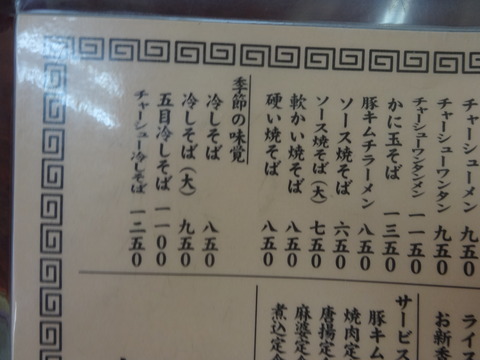 チャーシューメン 九五〇
チャーシューワンタン 九五〇
チャーシューワンタンメン 一一五〇
かに玉そば 一三五〇
豚キムチラーメン 八五〇
ソース焼そば 六五〇
ソース焼そば(大) 七五〇
軟かい焼そば 八五〇
硬い焼そば 八五〇
季節の味覚
冷しそば 八五〇
冷しそば(大) 九五〇
五目冷しそば 一一〇〇
チャーシュー冷しそば 一二五〇
ライス
お新香
サービ
豚キム
焼肉定
唐揚定
麻婆定
煮込定